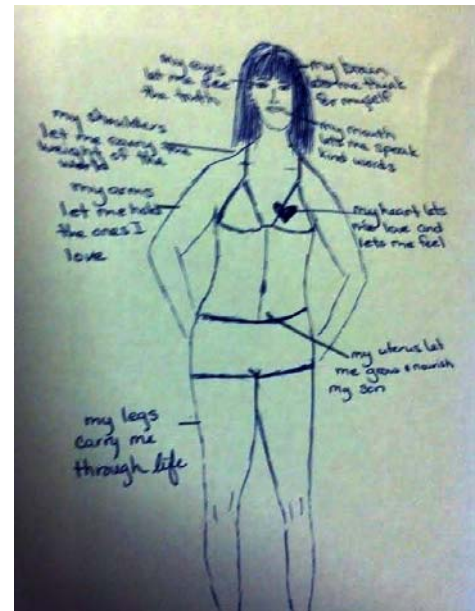 my eyes
let me see
the truth
my brain
lets me think
for myself
my shoulders
let me carry the
weight of the
world
my mouth
lets me speak
kind words
my arms
let me hold
the ones I
love
my heart lets
me love and
lets me feel
my uterus let
me grow & nourish
my son
my legs
carry me
through life